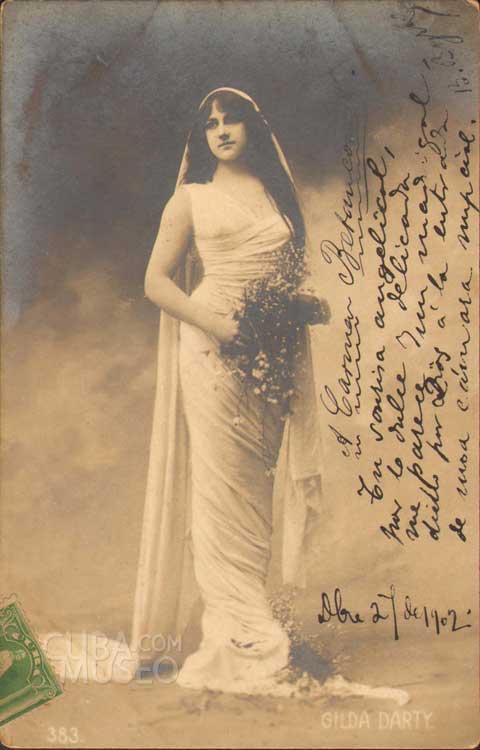 A Carmen Betancourt
Tu sonrisa angelical,
por lo dulce y delicada,
me parece un madrigal
dicho por Dios á la entrada
de una cámara nupcial.
Dbre 27 de 1902.
CUBA.COM
MUSEO
383.
GILDA DARTY.